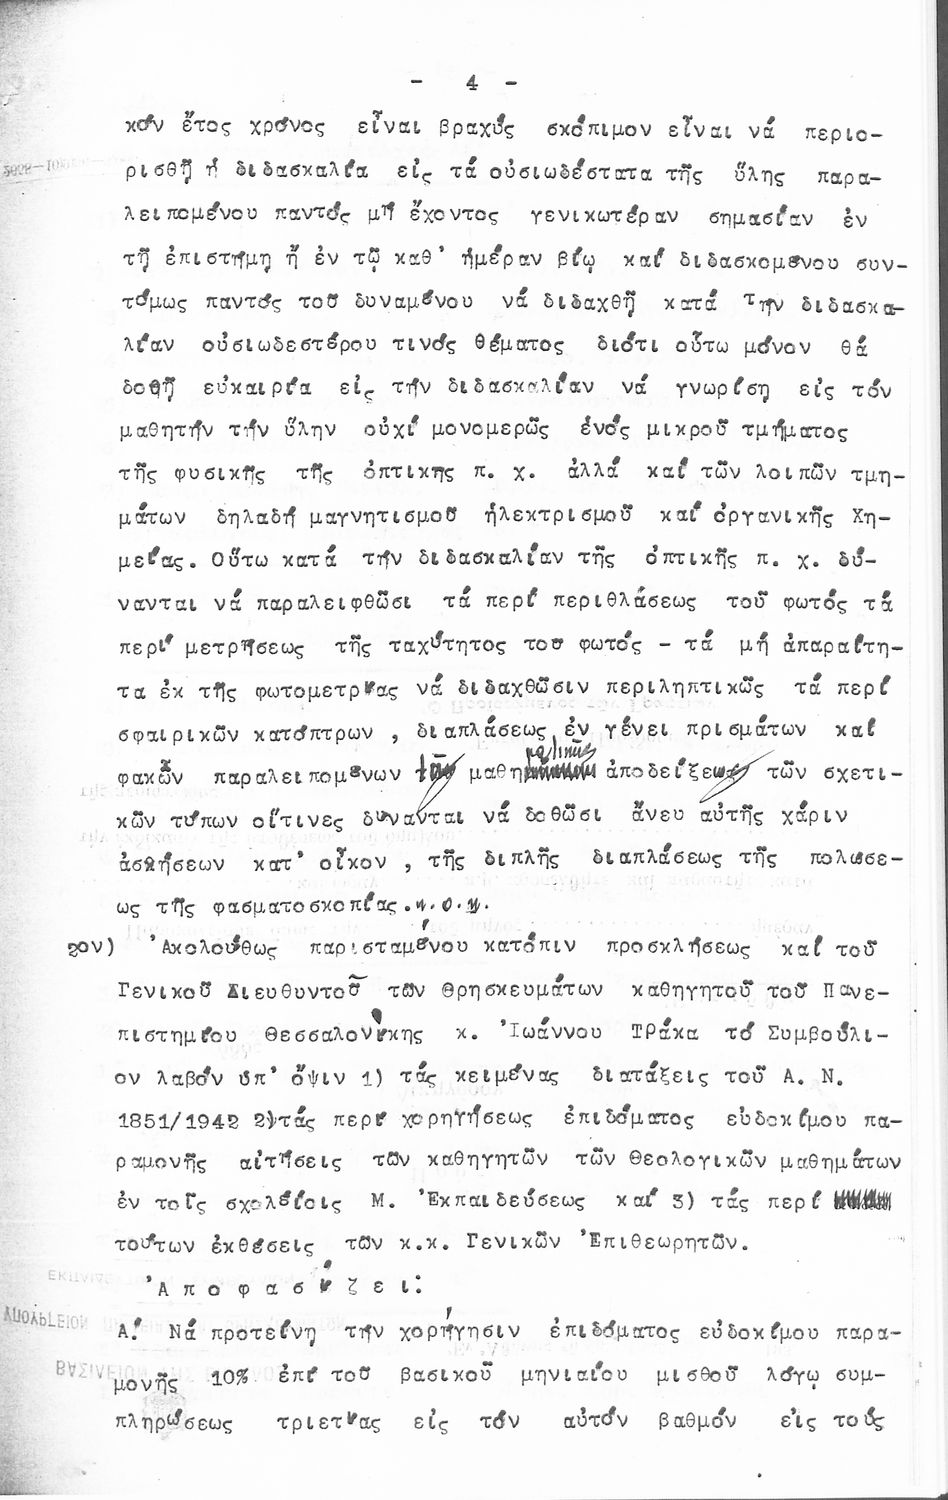 - 4 -
κόν ἔτος χρόνος εἶναι βραχύς σκόπιμον εἶναι νά περιο-
ρισθῇ ἡ διδασκαλία εἰς τά οὐσιωδέστατα τῆς ὕλης παρα-
λειπομένου παντός μή ἔχοντος γενικωτέραν σημασίαν ἐν
τῇ ἐπιστήμῃ ἤ ἐν τῷ καθ' ἡμέραν βίῳ καί διδασκομένου συν-
τόμως παντός τοῦ δυναμένου νά διδαχθῇ κατά τήν διδασκα-
λίαν οὐσιωδεστέρου τινός θέματος διότι οὕτω μόνον θά
δοθῇ εὐκαιρία εἰς τήν διδασκαλίαν νά γνωρίσῃ εἰς τόν
μαθητήν τήν ὕλην οὐχί μονομερῶς ἑνός μικροῦ τμήματος
τῆς φυσικῆς τῆς ὀπτικῆς π. χ. ἀλλά καί τῶν λοιπῶν τμη-
μάτων δηλαδή μαγνητισμοῦ ἠλεκτρισμοῦ καί ὀργανικῆς Χη-
μείας. Οὕτω κατά τήν διδασκαλίαν τῆς ὀπτικῆς π. χ. δύ-
νανται νά παραλειφθῶσι τά περί περιθλάσεως τοῦ φωτός τά
περί μετρήσεως τῆς ταχύτητος τοῦ φωτός - τά μή ἀπαραίτη-
τα ἐκ τῆς φωτομετρίας νά διδαχθῶσιν περιληπτικῶς τά περί
σφαιρικῶν κατόπτρων , διαπλάσεως ἐν γένει πρισμάτων καί
φακῶν παραλειπομένων τῶν μαθηματικῶν ἀποδείξεων τῶν σχετι-
κῶν τύπων οἵτινες δύνανται νά δοθῶσι ἄνευ αὐτῆς χάριν
ἀσκήσεων κατ' οἶκον , τῆς διπλῆς διαπλάσεως τῆς πολώσε-
ως τῆς φασματοσκοπίας.κ.ο.κ.
2ον) Ἀκολούθως παρισταμένου κατόπιν προσκλήσεως καί τοῦ
Γενικοῦ Διευθυντοῦ τῶν Θρησκευμάτων καθηγητοῦ τοῦ Πανε-
πιστημίου Θεσσαλονίκης κ. Ἰωάννου ΤΡάκα τό Συμβούλι-
ον λαβόν ὑπ' ὄψιν 1) τάς κειμένας διατάξεις τοῦ Α. Ν.
1851/1942 2)τάς περί χορηγήσεως ἐπιδόματος εὐδοκίμου πα-
ραμονῆς αἰτήσεις τῶν καθηγητῶν τῶν Θεολογικῶν μαθημάτων
ἐν τοῖς σχολείοις Μ. Ἐκπαιδεύσεως καί 3) τάς περί
τούτων ἐκθέσεις τῶν κ.κ. Γενικῶν Ἐπιθεωρητῶν.
Ἀ π ο φ α σ ί ζ ε ι :
Α. Νά προτείνῃ τήν χορήγησιν ἐπιδόματος εὐδοκίμου παρα-
μονῆς 10% ἐπί τοῦ βασικοῦ μηνιαίου μισθοῦ λόγῳ συμ-
πληρώσεως τριετίας εἰς τόν αὐτόν βαθμόν εἰς τούς